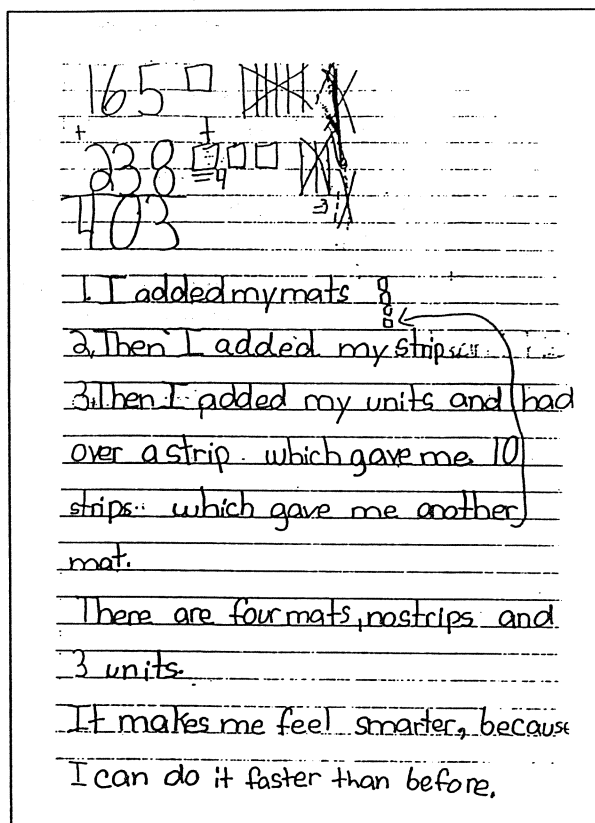 165
+ +
238 =4
403 =3
1. I added my mats
2. Then I added my strips..
3. Then I added my units and had
over a strip. which gave me 10
strips.. which gave me another
mat.
There are four mats, no strips and
3 units.
It makes me feel smarter, because
I can do it faster than before.